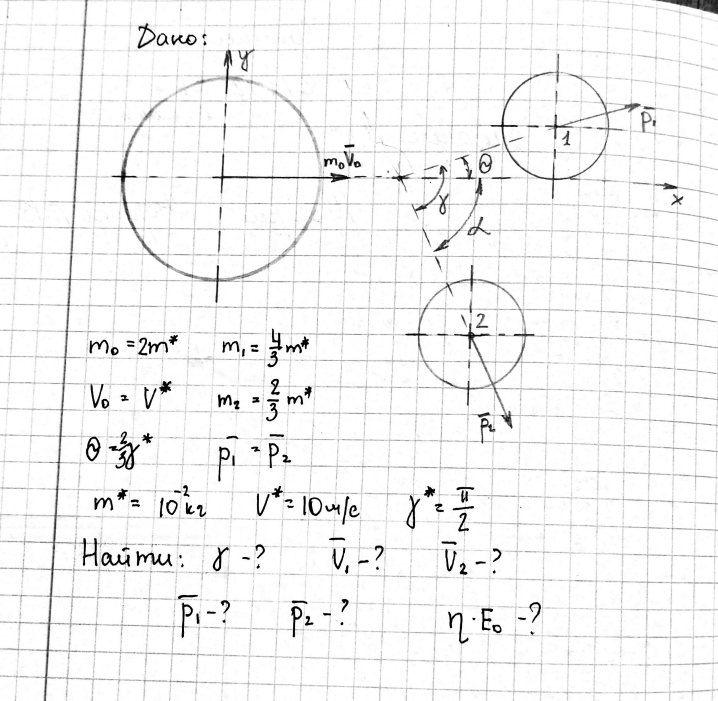 Дано:
y
m₀V̄₀
1
p̄₁
θ
γ
x
α
2
p̄₂
m₀ = 2m* m₁ = 4/3 m*
V₀ = V* m₂ = 2/3 m*
θ = 2/3 γ* p̄₁ = p̄₂
m* = 10⁻² кг V* = 10 м/с γ* = π/2
Найти: γ - ? V̄₁ - ? V̄₂ - ?
p̄₁ - ? p̄₂ - ? η · E₀ - ?